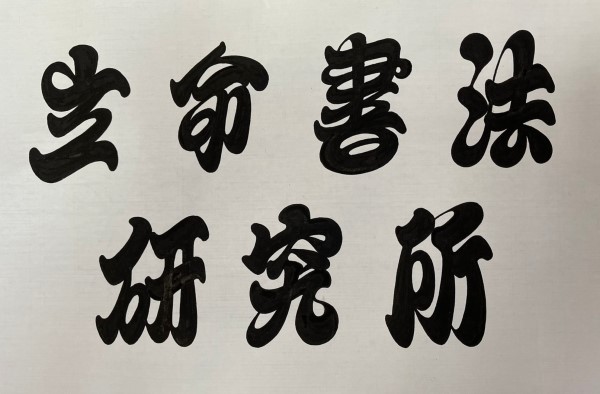 生命書法
研究所